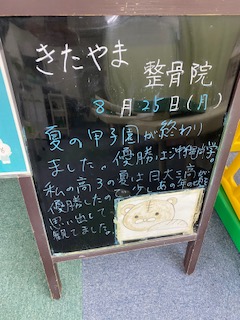 きたやま
整骨院
8月25日(月)
夏の甲子園が終わり
ました。優勝は沖縄尚学。
私の高3の夏は日大三高が
優勝したので、少しあの年の頃を
思い出して
観てました。